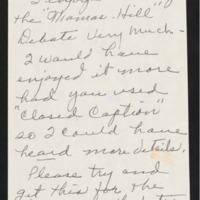 the "Thomas-Hill"
Debate very much-
I would have
enjoyed it more
had you used
"Closed Caption"
so I could have
heard more details.
Please try and
get this for the